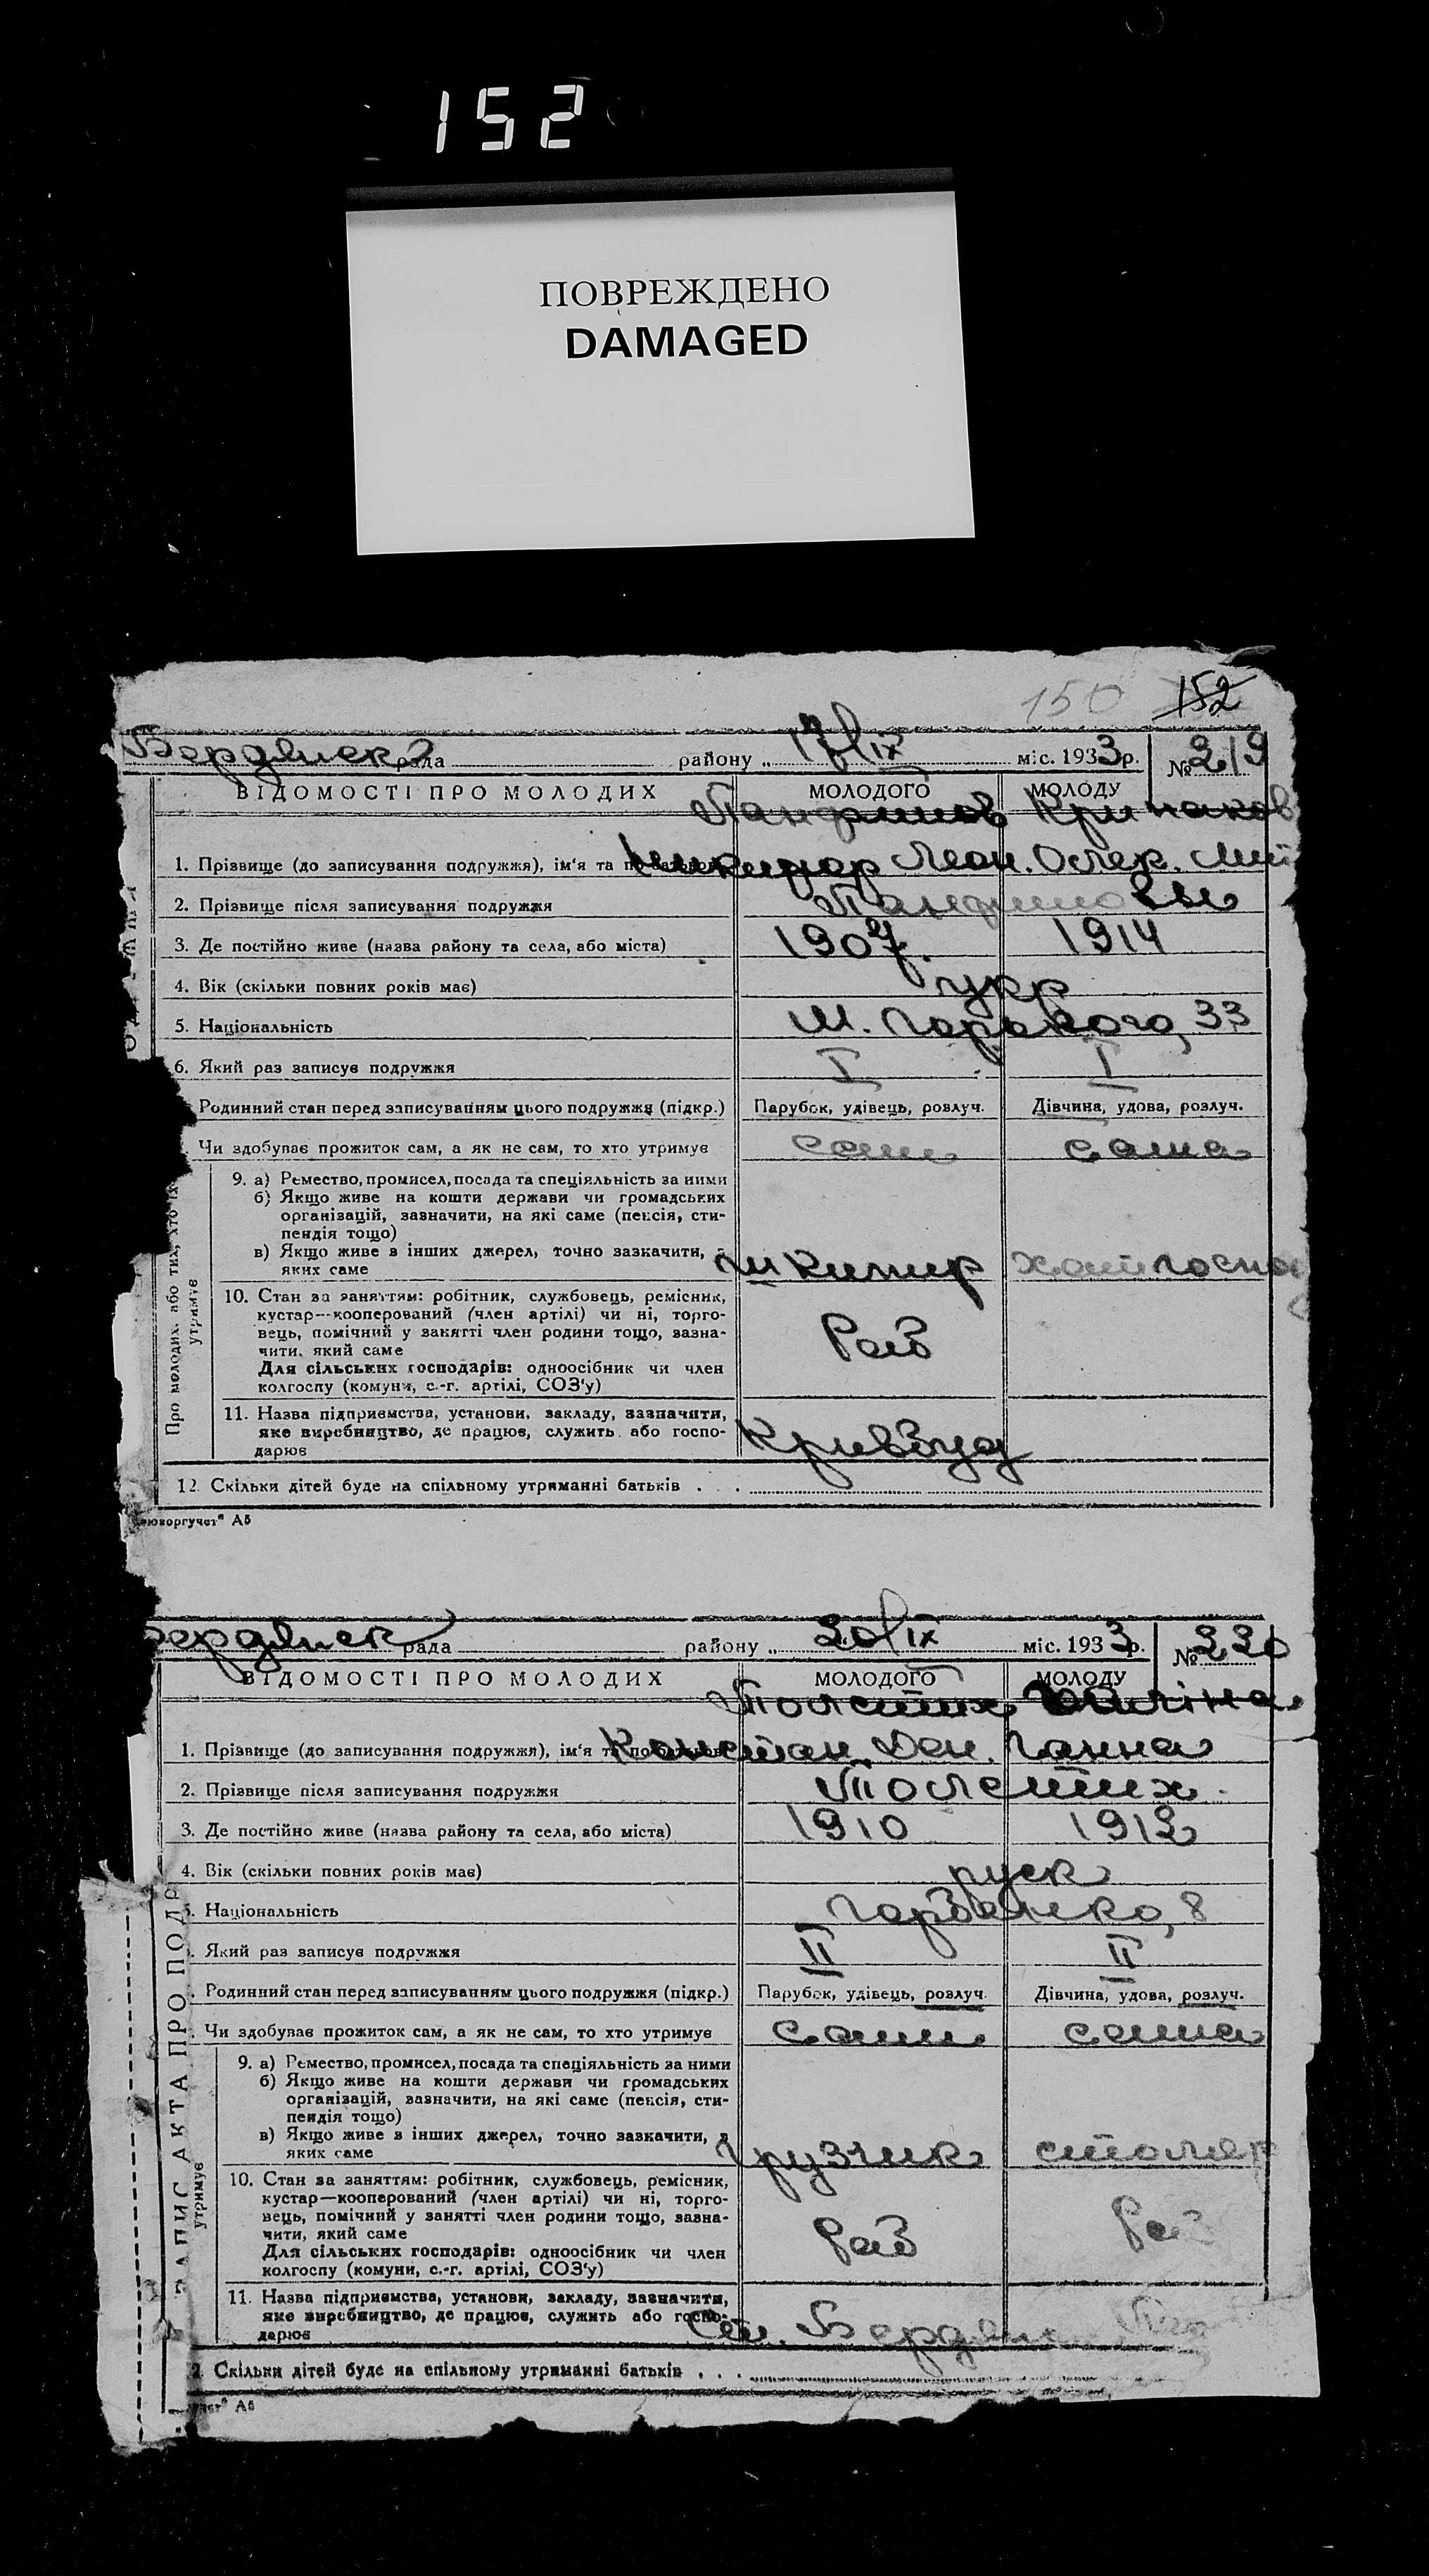 152
ПОВРЕЖДЕНО
DAMAGED
150 152
Бердянск рада району „ 17/IX міс. 1933 р. № 219
ВІДОМОСТІ ПРО МОЛОДИХ МОЛОДОГО МОЛОДУ
Панфилов
1. Прізвище (до записування подружжя), ім'я та по батькові Никифор Леон. Олек.
2. Прізвище після записування подружжя Панфиловы
3. Де постійно живе (назва району та села, або міста) 1907. 1914
4. Вік (скільки повних років має) укр
5. Національність М. Горького, 33
6. Який раз записує подружжя I I
Родинний стан перед записуванням цього подружжя (підкр.) Парубок, удівець, розлуч. Дівчина, удова, розлуч.
Чи здобуває прожиток сам, а як не сам, то хто утримує сами сама
9. а) Ремество, промисел, посада та спеціяльність за ними
б) Якщо живе на кошти держави чи громадських
організацій, зазначити, на які саме (пенсія, сти-
пендія тощо)
в) Якщо живе з інших джерел, точно зазначити, з
яких саме шкипир
Про молодих, або тих, хто їх
утримує
10. Стан за заняттям: робітник, службовець, ремісник,
кустар—кооперований (член артілі) чи ні, торго-
вець, помічний у занятті член родини тощо, зазна-
чити, який саме Раб
Для сільських господарів: одноосібник чи член
колгоспу (комуни, с.-г. артілі, СОЗ'у)
11. Назва підприємства, установи, закладу, зазначити,
яке виробництво, де працює, служить або госпо-
дарює
12. Скільки дітей буде на спільному утриманні батьків . . .
юворгучет" Аб
Бердянск рада району „ 20/IX міс. 1933 р. № 220
ВІДОМОСТІ ПРО МОЛОДИХ МОЛОДОГО МОЛОДУ
Толстих
1. Прізвище (до записування подружжя), ім'я та по батькові Констан. Ден. Ганна
2. Прізвище після записування подружжя Толстих.
3. Де постійно живе (назва району та села, або міста) 1910 1912
4. Вік (скільки повних років має) руск
5. Національність Горбенко, 8
Який раз записує подружжя II II
Родинний стан перед записуванням цього подружжя (підкр.) Парубок, удівець, розлуч. Дівчина, удова, розлуч.
Чи здобуває прожиток сам, а як не сам, то хто утримує сами сама
9. а) Ремество, промисел, посада та спеціяльність за ними
б) Якщо живе на кошти держави чи громадських
організацій, зазначити, на які саме (пенсія, сти-
пендія тощо)
в) Якщо живе з інших джерел, точно зазначити, з
яких саме грузчик столяр
ЗАПИС АКТА ПРО ПОДР
утримує
10. Стан за заняттям: робітник, службовець, ремісник,
кустар—кооперований (член артілі) чи ні, торго-
вець, помічний у занятті член родини тощо, зазна-
чити, який саме Раб Раб
Для сільських господарів: одноосібник чи член
колгоспу (комуни, с.-г. артілі, СОЗ'у)
11. Назва підприємства, установи, закладу, зазначити,
яке виробництво, де працює, служить або госпо-
дарює Ст. Бердян
2 Скільки дітей буде на спільному утриманні батьків . . .
Аб